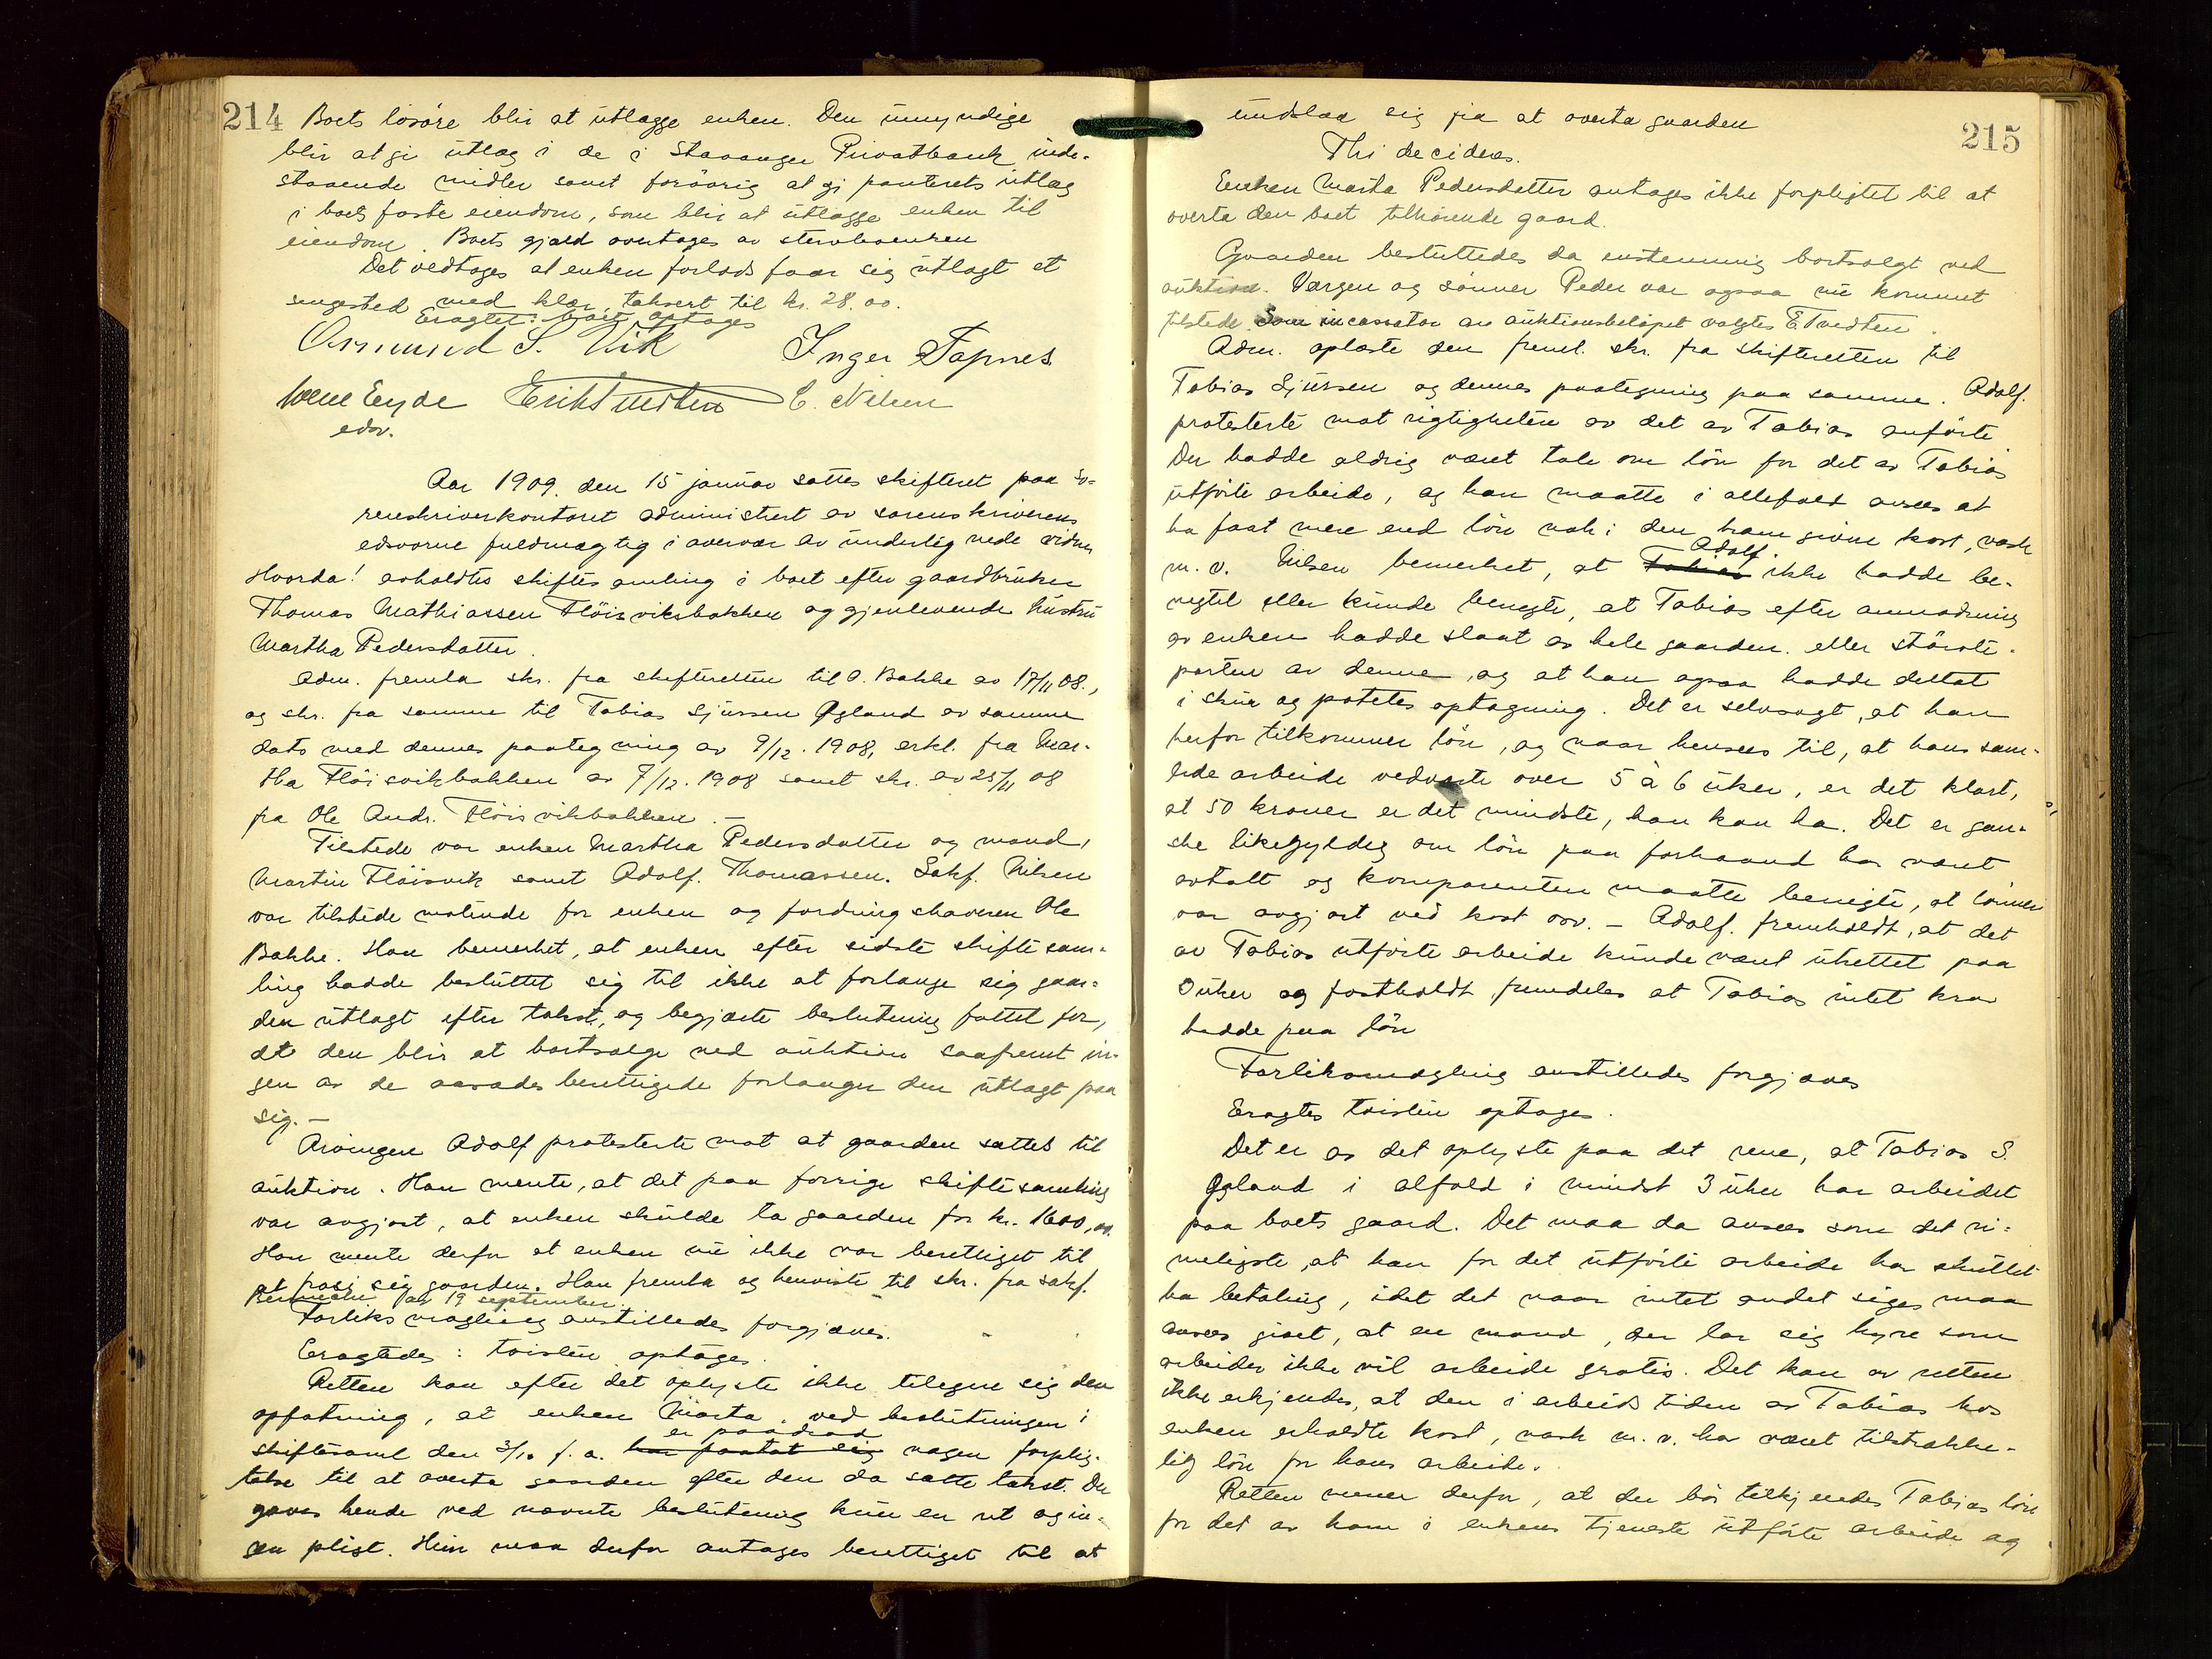 214 Boets løsøre blir at utlægge enken. Den umyndige
blir at gi utlæg i de i Stavanger Privatbank inde-
staaende midler samt forøvrig at gi panterets utlæg
i boets faste eiendom, som blir at utlægge enken til
eiendom. Boets gjæld overtages av stervboenken
Det vedtoges at enken forlods faar sig utlagt et
sengested med klær, taksert til kr. 28.00.
Eragtet: boet optages
Osmund S. Vik Inger Tapnes
Eeyde Erik Tvedten E. Nilsen
edsv.
Aar 1909 den 15 januar sattes skifteret paa so-
renskriverkontoret administrert av sorenskriverens
edsvorne fuldmægtig i overvær av undertegnede vidner
Hvorda! avholdtes skiftesamling i boet efter gaardbruker
Thomas Mathiassen Fløisviksbakken og gjenlevende hustru
Martha Pedersdatter.
Adm. fremla skr. fra skifteretten til O. Bakke av 17/11 08.,
og skr. fra samme til Tobias Sjursen Øgland av samme
dato med dennes paategning av 9/12. 1908, erkl. fra Mar-
tha Fløisvikbakken av 7/12. 1908 samt skr. av 25/11 08
fra Ole Andr. Fløisvikbakken. –
Tilstede var enken Martha Pedersdatter og mand,
Martin Fløisvik samt Adolf. Thomassen. Sakf. Nilsen
var tilstede møtende for enken og fordringshaveren Ole
Bakke. Han bemerket, at enken efter sidste skiftesam-
ling hadde besluttet sig til ikke at forlange sig gaar-
den utlagt efter takst, og begjærte beslutning fattet for,
at den blir at bortsælge ved auktion saafremt in-
gen av de aasædesberettigede forlanger den utlagt paa
sig. –
Arvingen Adolf protesterte mot at gaarden sattes til
auktion. Han mente, at det paa forrige skiftesamling
var avgjort, at enken skulde ta gaarden for kr. 1600,00.
Han mente derfor at enken nu ikke var berettiget til
at frasi sig gaarden. Han fremla og henviste til skr. fra sakf.
av 19 september.
Forliksmægling anstilledes forgjæves.
Eragtedes: tvisten optages.
Retten kan efter det oplyste ikke tilegne sig den
opfatning, at enken Marta, ved beslutningen i
er paadrad
skiftesaml den 3/10 f. a. har paatat sig nogen forplig-
telse til at overta gaarden efter den da satte takst. Der
gaves hende ved nævnte beslutning kun en ret og in-
gen pligt. Hun maa derfor antages berettiget til at
215
undslaa sig fra at overta gaarden
Thi decideres.
Enken Marta Pedersdatter antages ikke forpligtet til at
overta den boet tilhørende gaard.
Gaarden besluttedes da enstemmig bortsolgt ved
auktion. Værgen og sønnen Peder var ogsaa nu kommet
tilstede. Som incassator av auktionsbeløpet valgtes E Tvedten.
Adm. oplæste den freml. skr. fra skifteretten til
Tobias Sjursen og dennes paategning paa samme. Adolf.
protesterte mot rigtigheten av det av Tobias anførte
Der hadde aldrig været tale om løn for det av Tobias
utførte arbeide, og han maatte i allefald ansees at
ha faat mere end løn nok i den ham givne kost, vask
Adolf
m. v. Nilsen bemerket, at Tobias ikke hadde be-
negtet eller kunde benegte, at Tobias efter anmodning
av enken hadde slaat av hele gaarden eller største-
parten av denne, og at han ogsaa hadde deltat
i skur og potetes optagning. Det er selvsagt, at han
herfor tilkommer løn, og naar hensees til, at hans sam-
lede arbeide vedvarte over 5 à 6 uker, er det klart,
at 50 kroner er det mindste, han kan ha. Det er gan-
ske likegyldig om løn paa forhaand har været
avtalt og komparenten maatte benegte, at lønnen
var avgjort ved kost osv. – Adolf. fremholdt, at det
av Tobias utførte arbeide kunde været utrettet paa
3 uker og fastholdt fremdeles at Tobias intet krav
hadde paa løn
Forliksmægling anstilledes forgjæves
Eragtes tvisten optages.
Det er av det oplyste paa det rene, at Tobias S.
Øgland i alfald i mindst 3 uker har arbeidet
paa boets gaard. Det maa da ansees som det ri-
meligste, at han for det utførte arbeide har skullet
ha betaling, idet det naar intet andet siges maa
ansees givet, at en mand, der lar sig hyre som
arbeider ikke vil arbeide gratis. Det kan av retten
ikke erkjendes, at den i arbeidstiden av Tobias hos
enken erholdte kost, vask m. v. har været tilstrække-
lig løn for hans arbeide.
Retten mener derfor, at der bør tilkjendes Tobias løn
for det av ham i enkens tjeneste utførte arbeide og